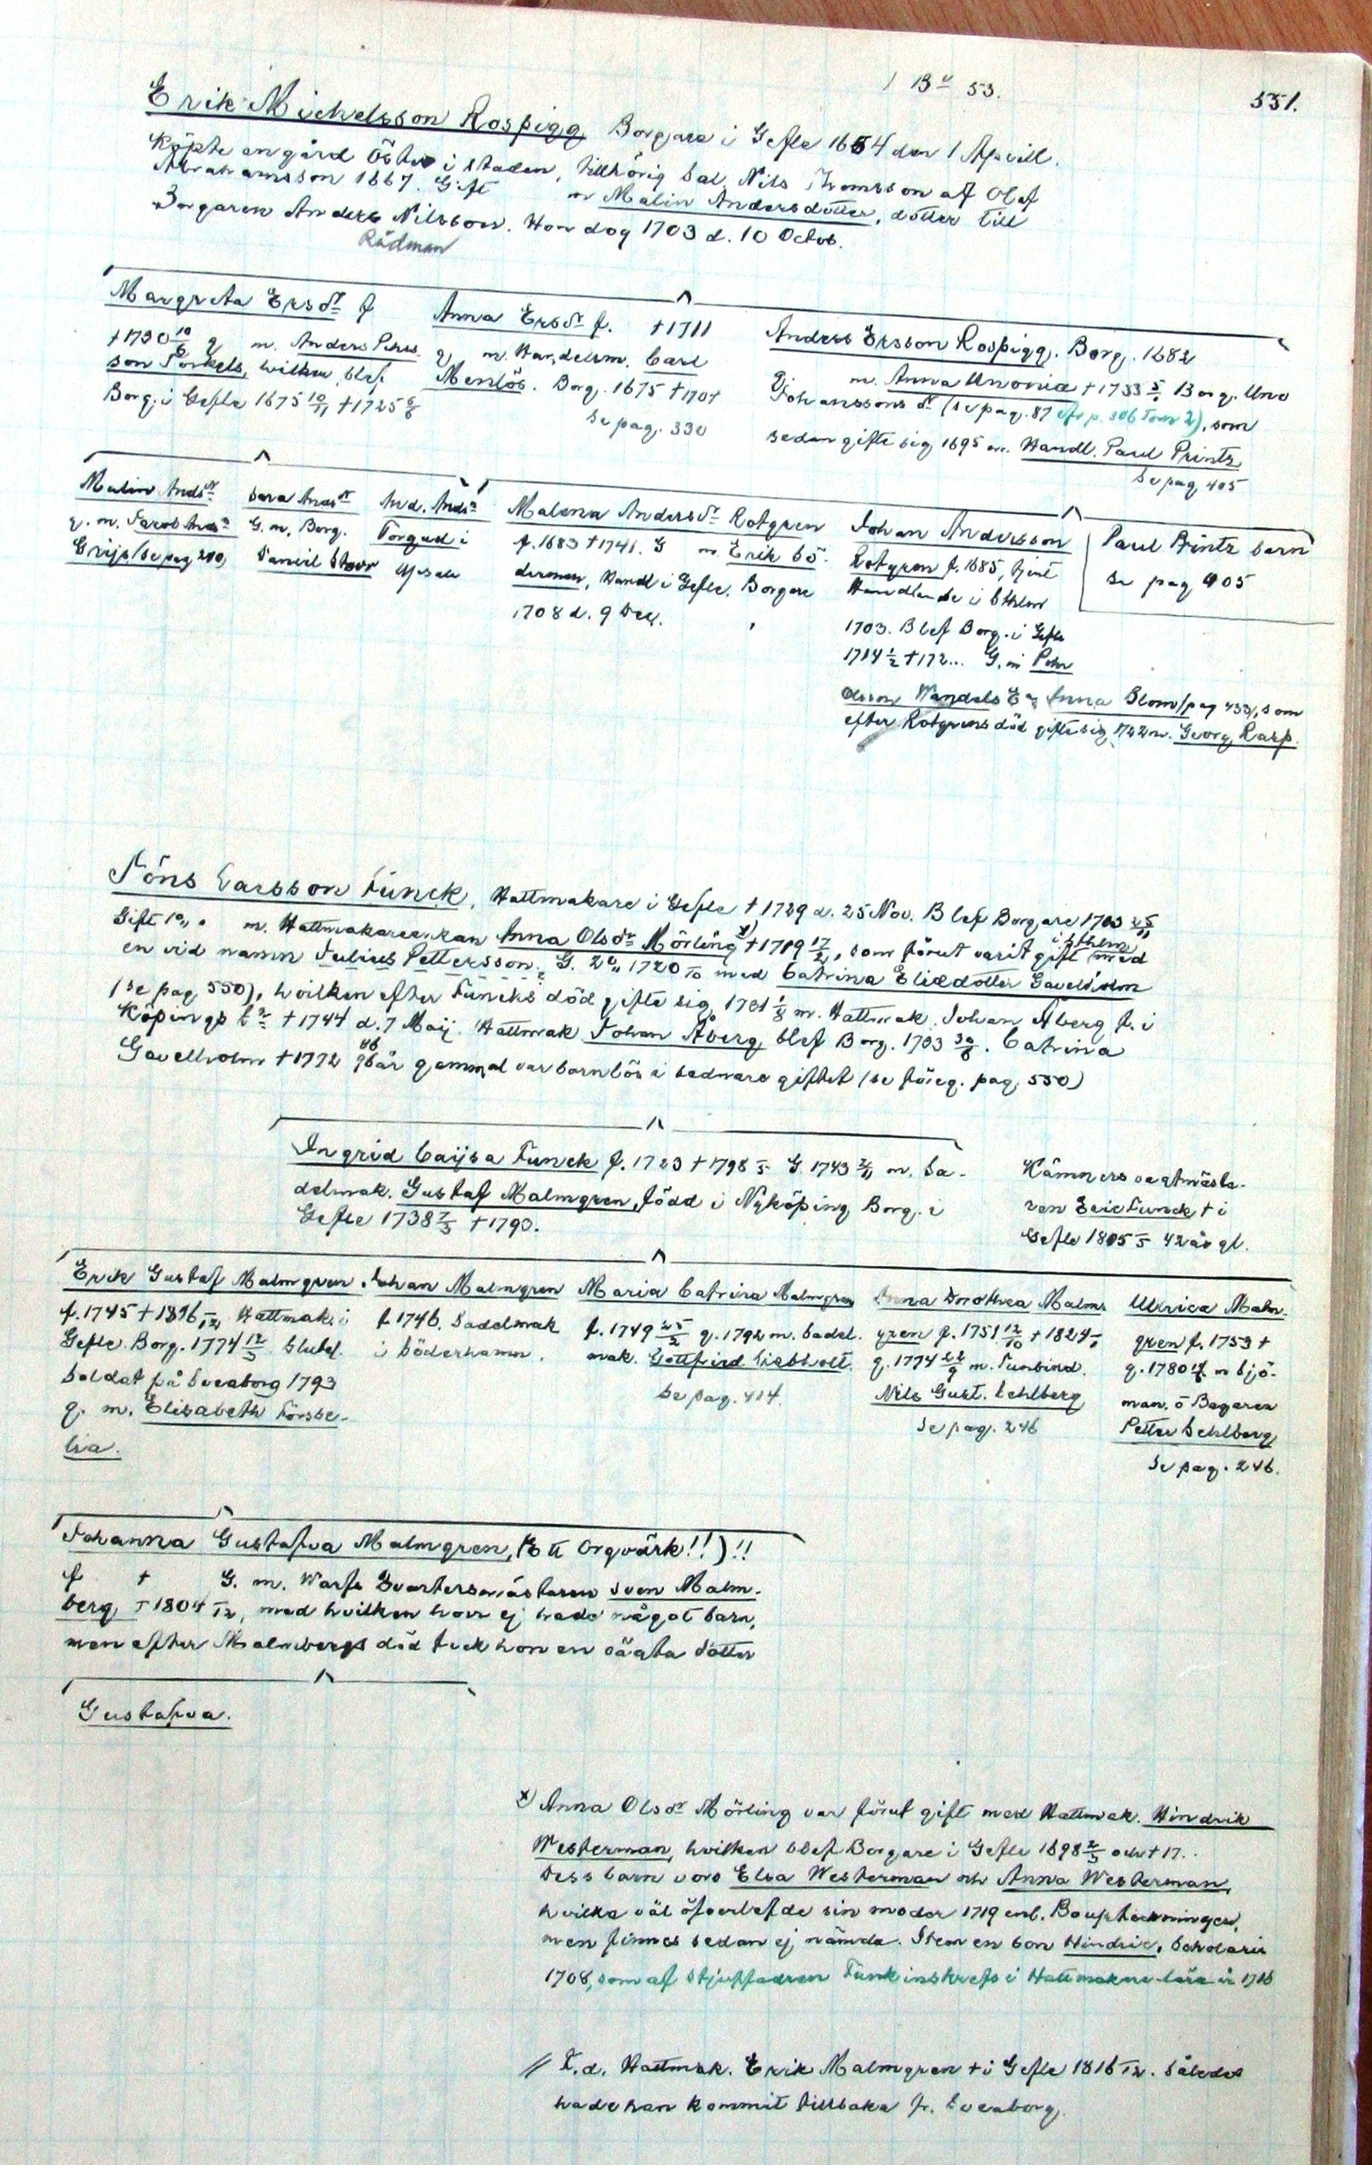 1 Bu 53.
551.
Erik Michelsson Rospigg Borgare i Gefle 1654 den 1 Aprill.
Köpte en gård Öster i staden, tillhörig Sal. Nils Thomsson af Olof
Abrahamsson 1667. Gift m Malin Andersdotter, dotter till
Borgaren Anders Nilsson. Hon dog 1703 d. 10 Octob.
Rådman
Margreta Ersdr f
†1730 10/6 g m. Anders Pehrs
son Torkels, hvilken blef
Borg. i Gefle 1675 10/11 †1725 6/8
Anna Ersdr f. †1711
g m. Handelsm. Carl
Menlös. Borg. 1675 †1701
Se pag. 330
Anders Ersson Rospigg. Borg. 1682
G m. Anna Unonia †1733 5/. Borg. Uno
Johanssons dr (se pag. 87 efr p. 306 Tom 2), som
sedan gifte sig 1695 m. Handl. Paul Printz
Se pag 405
Malin Andsdr
g. m. Jacob Ands
Grijs (se pag 210)
Sara Andsdr
G. m. Borg.
Daniel Stoor
And. Andsn
Torgud i
Upsala
Malena Andersdr Rotgren
f. 1683 †1741. G m Erik Sö-
derman, Handl i Gefle. Borgare
1708 d. 9 Dec.
Johan Andersson
Rotgren f. 1685, tjent
Handlande i Sthlm
1703. Blef Borg. i Gefle
1714 1/2 †172... G. m Pehr
Olsson Wandels E: Anna Blom (pag 433), som
efter Rotgrens död gifte sig 1722 m. Georg Rasp.
Paul Printz barn
se pag 405
Jöns Larsson Funck, Hattmakare i Gefle †1729 d. 25 Nov. Blef Borgare 1703 25/11
Gift 1o m. Hattmakareenkan Anna Olsdr Mörling x) †1719 17/2, som förut varit gift i Sthlm med
en vid namn Julius Pettersson. G. 2o 1720 med Catrina Eliædotter Gavelholm
(se pag 550), hvilken efter Funcks död gifte sig 1731 1/8 m. Hattmak. Johan Åberg f. i
Köpings †1744 d. 7 Maij. Hattmak Johan Åberg blef Borg. 1733 30/8. Catrina
Gavelholm †1772 år gammal var barnlös i sednare giftet (se föreg. pag. 550)
Ingrid Caijsa Funck f. 1723 †1798 G. 1743 m. Sa-
delmak. Gustaf Malmgren, född i Nyköping Borg. i
Gefle 1738 7/5 †1790.
Kämners vagtmästa-
ren Eric Funck † i
Gefle 1805 42 år gl.
Erik Gustaf Malmgren
f. 1745 †1816 Hattmak. i
Gefle. Borg. 1774 12/5 slutel.
Soldat på Sveaborg 1793
g. m. Elisabeth Forsbe-
lia.
Johan Malmgren
f. 1746. Sadelmak
i Söderhamn.
Maria Catrina Malmgren
f. 1749 25/2 g. 1792 m. Sadel.
mak. Gottfried Liebholt.
Se pag. 414.
Anna Dorothea Malm-
gren f. 1751 12/10 †1824
g. 1774 22/9 m. Tunbind.
Nils Gust. Sehlberg
Se pag. 246
Ulrica Malm-
gren f. 1753 †
g. 1780 m Sjö-
man. o Bagaren
Petter Sehlberg
Se pag. 246.
Johanna Gustafva Malmgren, (Ett Orgvärk!!)!!
f † G. m. Warfs Qvartersmästaren Sven Malm-
berg †1804, med hvilken hon ej hade något barn,
men efter Malmbergs död fick hon en oägta dotter
Gustafva.
x) Anna Olsdr Mörling var förut gift med Hattmak. Hindrik
Westerman, hvilken blef Borgare i Gefle 1698 2/5 och †17..
Dess barn voro Elsa Westerman och Anna Westerman,
hvilka väl öfverlefde sin moder 1719 enl. Boupteckningen,
men finnes sedan ej nämda. Item en son Hindric, Scholaris
1708, som af Stjuffadren Funk inskrefs i Hattmakne lära år 1716
// F.d. Hattmak. Erik Malmgren † i Gefle 1816. Således
hade han kommit tillbaka fr. Sveaborg.